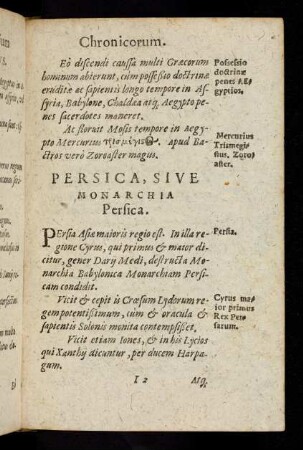 Chronicorum.
Eò discendi caussa multi Græcorum
hominum abierunt, cùm possessio doctrinæ
eruditæ ac sapientis longo tempore in As-
syria, Babylone, Chaldæa atq, Aegypto pe-
nes sacerdotes maneret.
Possessio
doctrinæ
penes AE-
gyptios.
At floruit Mosis tempore in Aegy-
pto Mercurius apud Ba-
ctros verò Zoroaster magus.
Mercurius
Trismegi-
stus. Zoro-
aster.
PERSICA, SIVE
MONARCHIA
Persica.
PErsia Asiæ maioris regio est. In illa re-
gione Cyrus, qui primus & maior di-
citur, gener Darij Medi, destructa Mo-
narchia Babylonica Monarchiam Persi-
cam condidit.
Persia.
Vicit & cepit is Crœsum Lydorum re-
gem potentissimum, cùm & oracula &
sapientis Solonis monita contempsisset.
Cyrus ma-
ior primus
Rex Per-
sarum.
Vicit etiam Iones, & in his Lycios
qui Xanthij dicuntur, per ducem Harpa-
gum.
I 2 Atq,